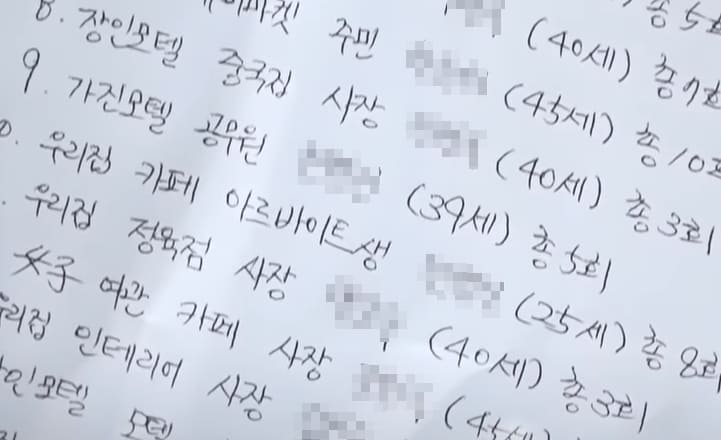 총 5회
(40세) 총 7회
마켓 주민 (45세) 총 10회
8. 장인모텔 중국집 사장 (40세) 총 3회
9. 가진모텔 공무원 (39세) 총 5회
0. 우리집 카페 아르바이트생 (25세) 총 8회
. 우리집 정육점 사장 (40세) 총 3회
여관 카페 사장 (45세)
우리집 인테리어 사장
인모텔 모텔